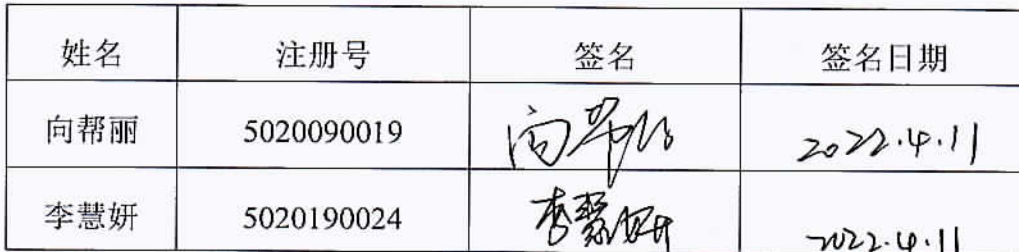 姓名 注册号 签名 签名日期
向帮丽 5020090019 向帮丽 2022.4.11
李慧妍 5020190024 李慧妍 2022.4.11